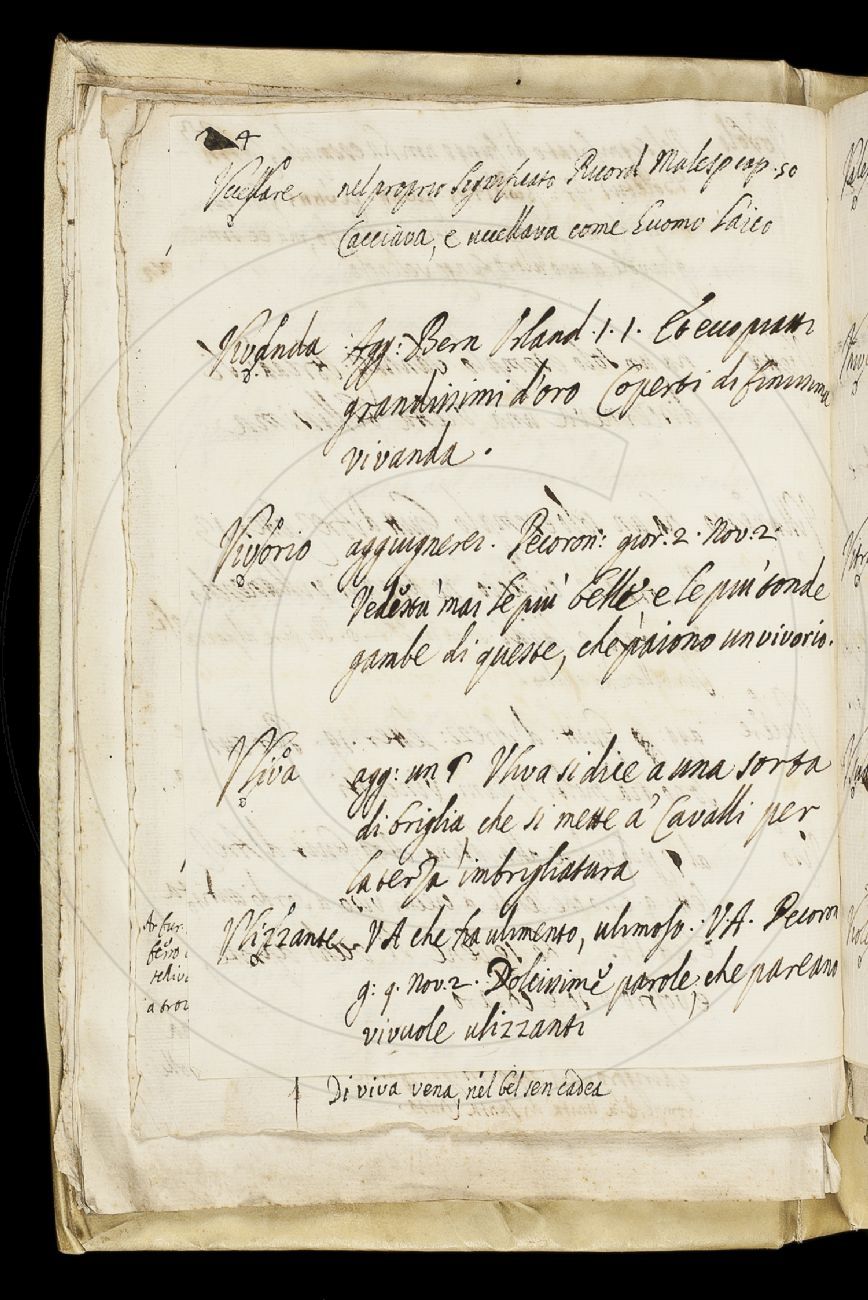 4
Vccellare nel proprio Significato Ricord Malesp cap. 50
Cacciava, e uccellava come Luomo Laico
Vivanda Agg: Bern Orland. 1. 1. Et ecco piatti
grandissimi d'oro Coperti di finissima
vivanda.
Vivorio aggiugnerei. Pecoron: gior. 2. Nov. 2.
Vedestu mai le piu belle e le piu tonde
gambe di queste, che paiono un vivorio.
Vliva agg: un ¶ Vliva si dice a una sorta
di briglia che si mette a' Cavalli per
la terza imbrigliatura
Vlizzante VA che ha ulimento, ulimoso. VA. Pecoron
g: 9. Nov. 2. Dolcissime parole, che pareano
vivuole ulizzanti
Di viva vena, nel bel sen cadea